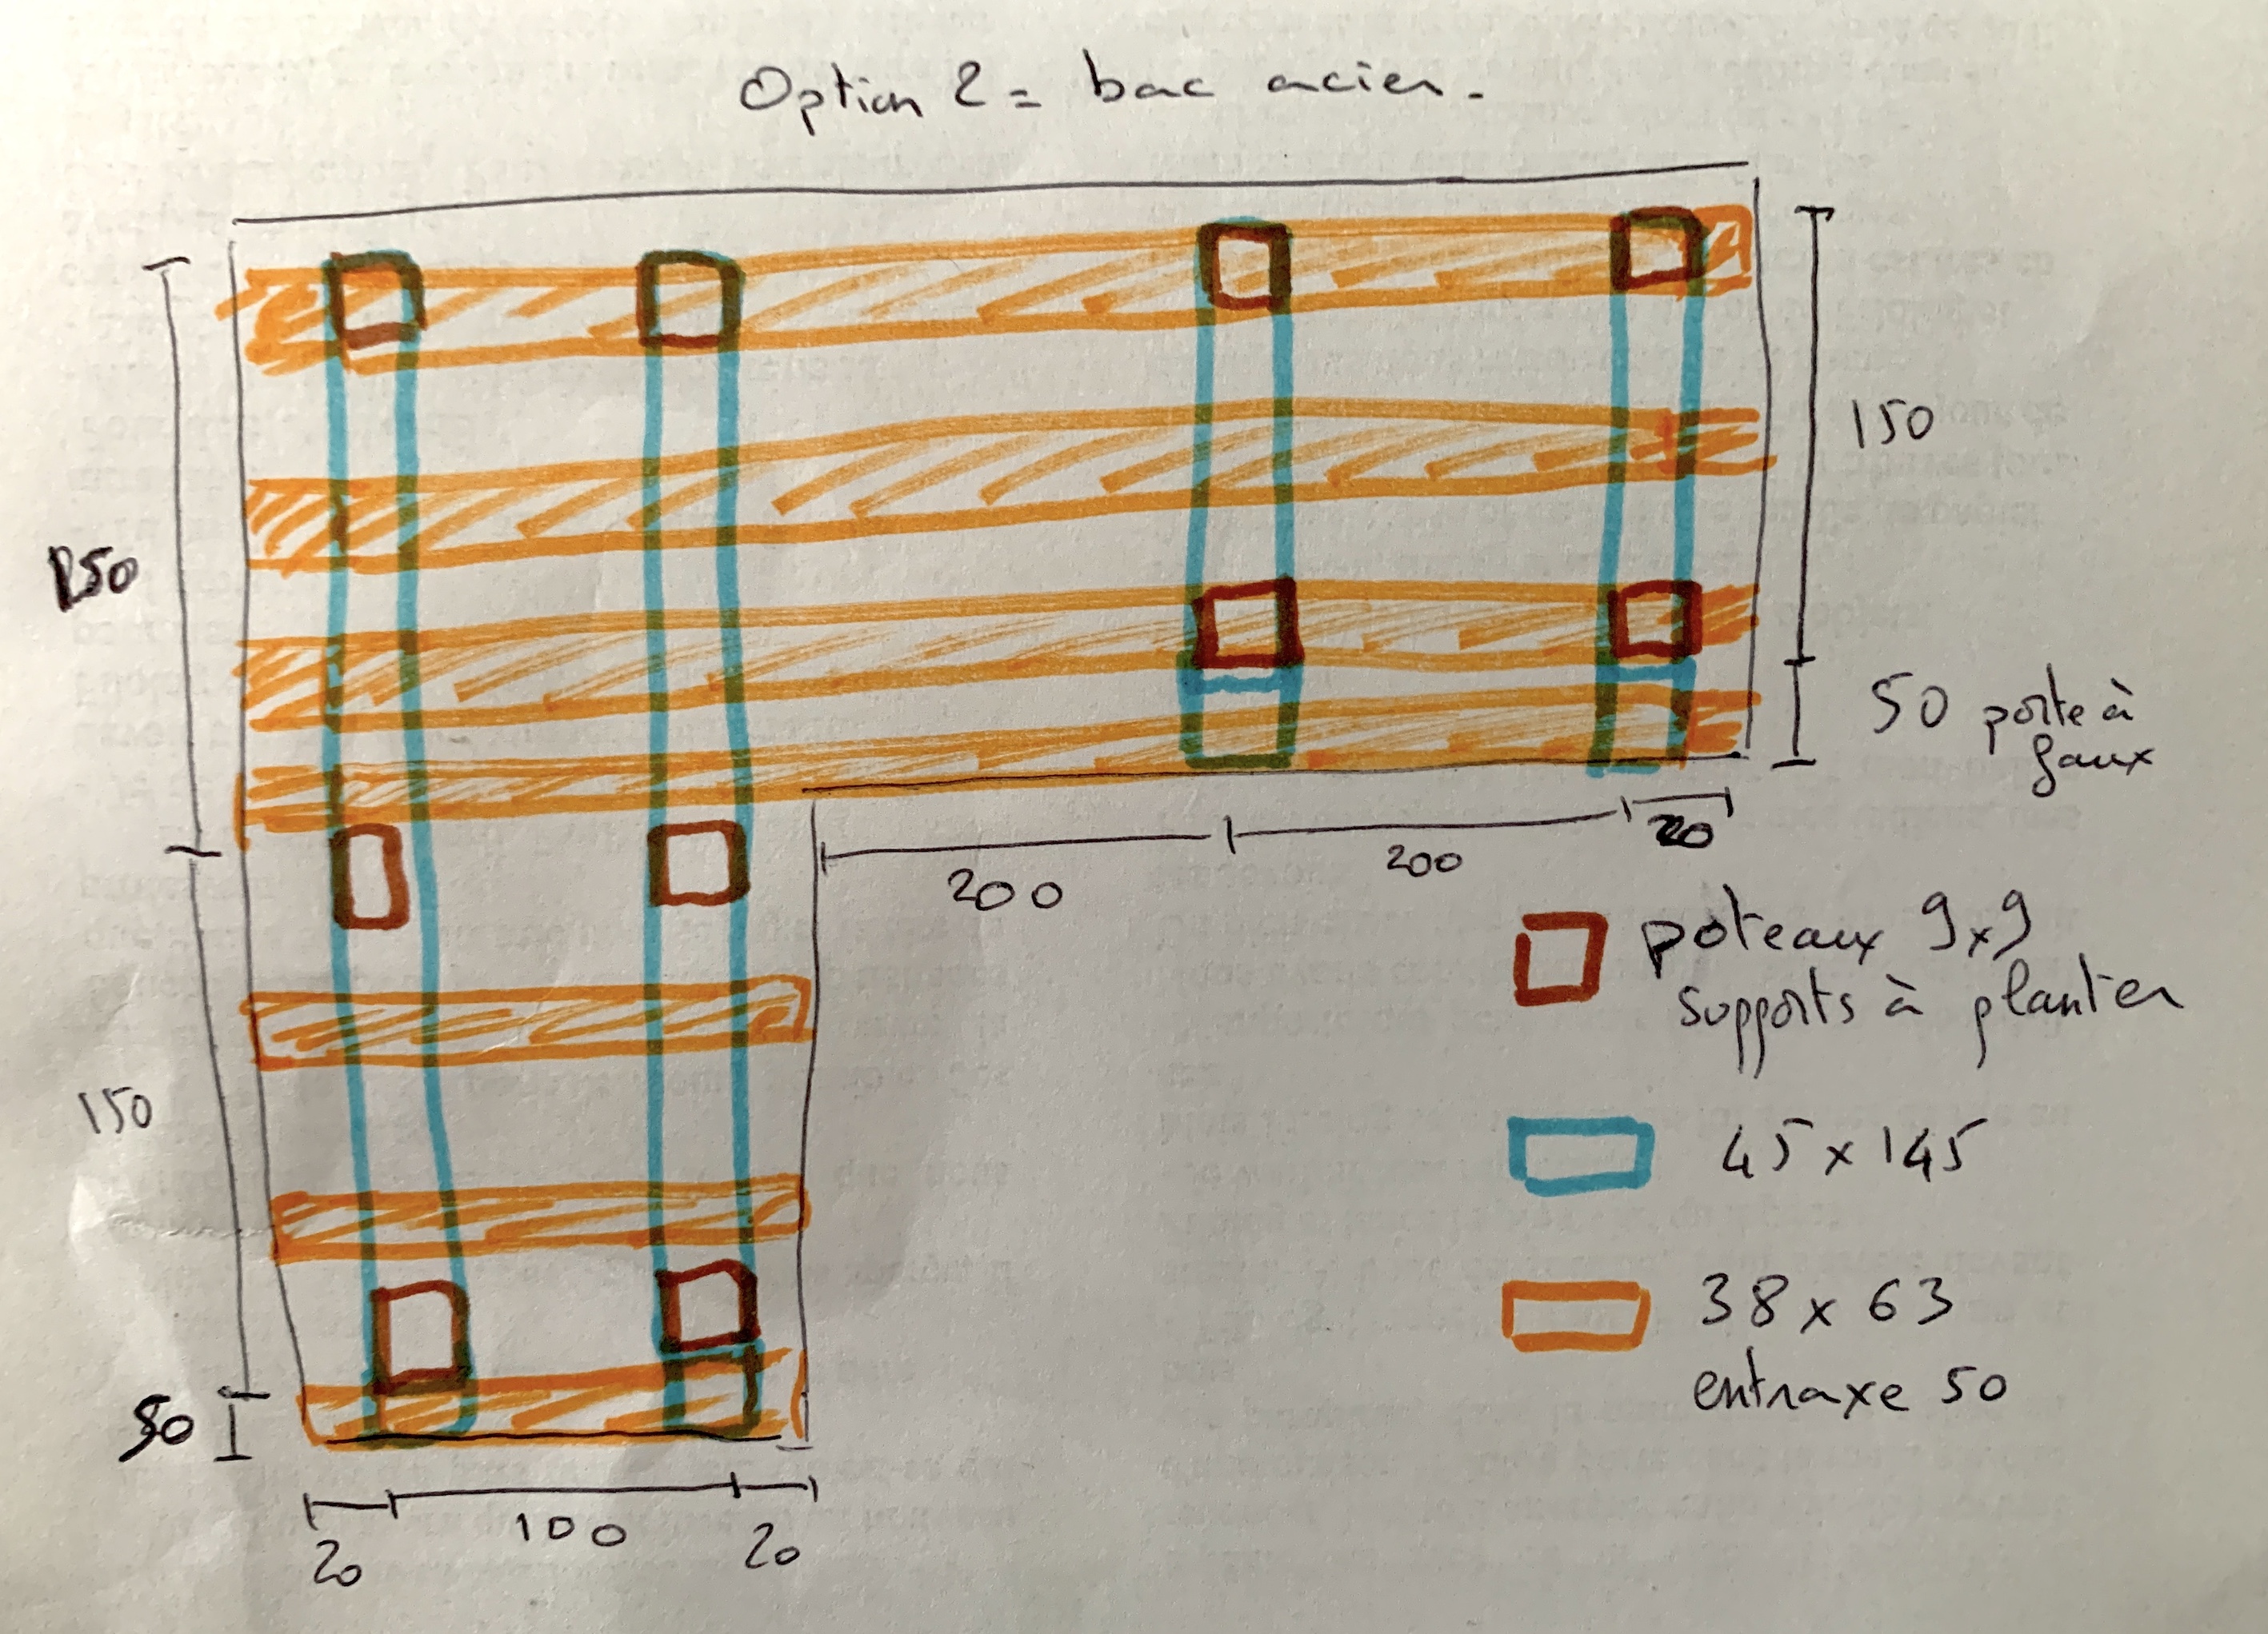 Option 2 = bac acier.
150
50 porte à
faux
150
20
200
200
poteaux 9x9
supports à planter
150
45 x 145
38 x 63
entraxe 50
50
100
20
20